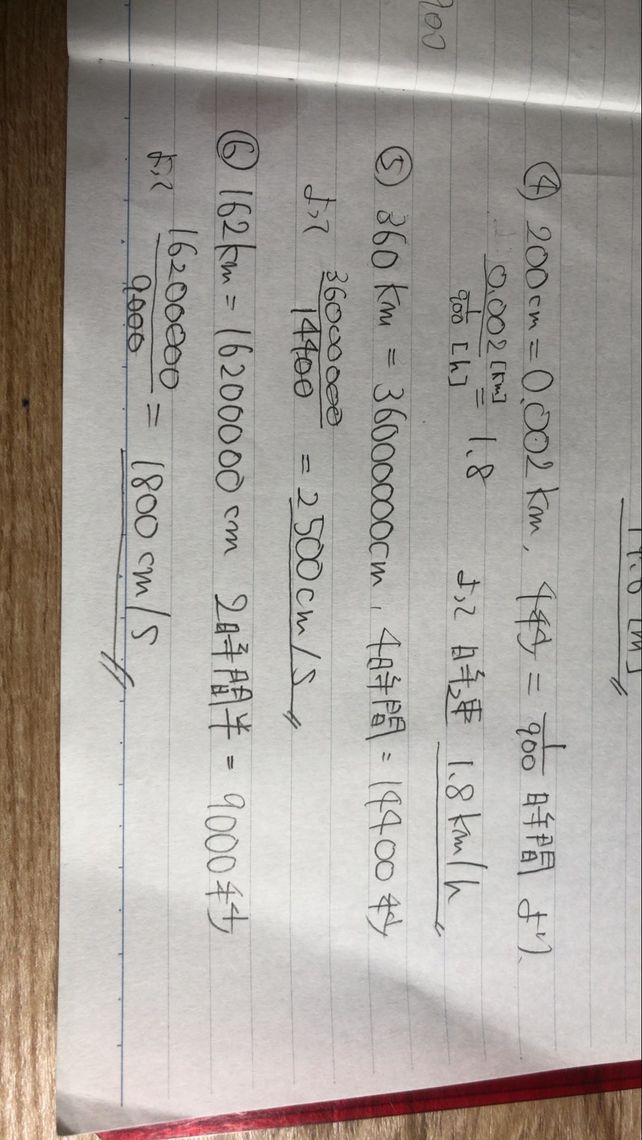 ④ 200cm = 0.002km, 4秒 = 1/900 時間 より、
0.002[km] / 1/900 [h] = 1.8 よって 時速 1.8km/h
⑤ 360km = 36000000cm, 4時間 = 14400秒
よって 36000000 / 14400 = 2500cm/s
⑥ 162km = 16200000cm 2時間半 = 9000秒
よって 16200000 / 9000 = 1800cm/s